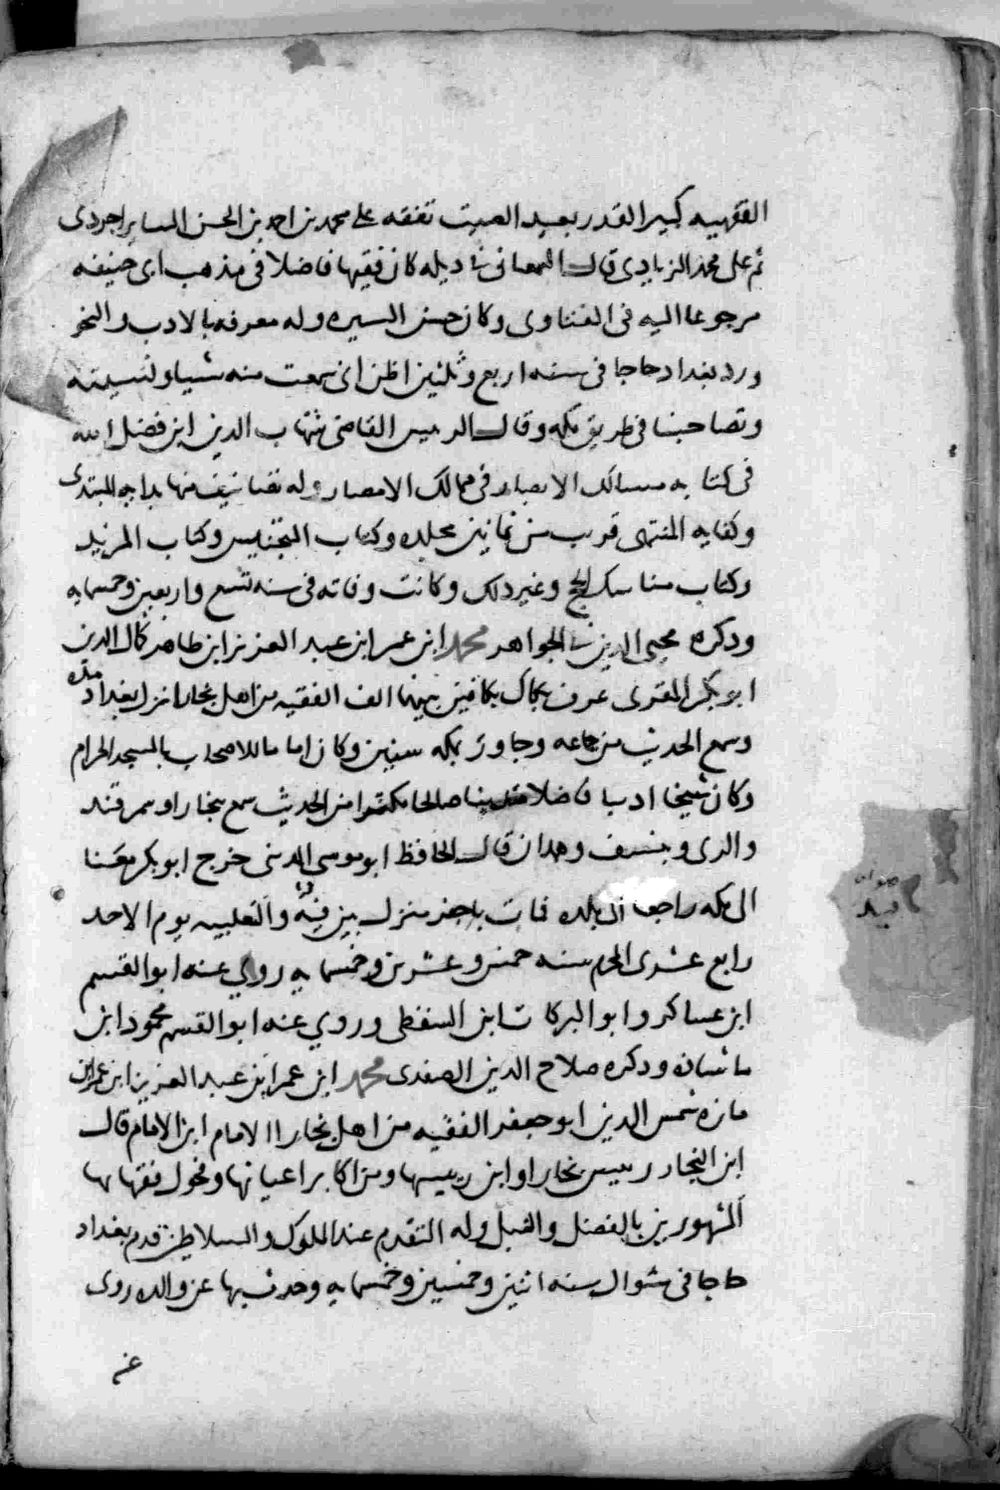 الفقهيه كبير القدر بعيد الصيت تفقه على محمد بن احمد بن الحسن السابراجردى
ثم على محمد الزيادى قال السمعانى فى ذيله كان فقيها فاضلا فى مذهب ابى حنيفه
مرجوعا اليه فى الفتاوى وكان حسن السيره وله معرفه بالادب والنحو
ورد بغداد حاجا فى سنه اربع وثلثين اظن انى سمعت منه شيا ونسيته
وتصاحبنا فى طريق مكه وقال الرييس القاضى شهاب الدين ابن فضل الله
فى كتابه مسالك الابصار فى ممالك الامصار وله تصانيف منها بدايه المبتدى
وكفايه المنتهى قريب من ثمانين مجلده وكتاب التجنيس وكتاب المزيد
وكتاب مناسك الحج وغير ذلك وكانت وفاته فى سنه تسع واربعين وخمسمايه
وذكره محيى الدين فى الجواهر محمد ابن عمر ابن عبد العزيز ابن طاهر كمال الدين
ابو بكر المقرى عرف بكاك بكافين بينهما الف الفقيه من اهل بخارا نزل بغداد مده
وسمع الحديث من جماعه وجاور بمكه سنين وكان اماما للاصحاب بالمسجد الحرام
وكان شيخا اديبا فاضلا متدينا صالحا مكثرا من الحديث سمع ببخارا وسمرقند
والرى وبنسف وهمدان قال الحافظ ابو موسى المدينى خرج ابو بكر معنا
الى مكه راجعا الى بلده فمات باجفر منزل بين فيد والثعلبيه يوم الاحد
رابع عشرى المحرم سنه خمس وعشرين وخمسمايه روى عنه ابو القسم
ابن عساكر وابو البركات ابن السقطى وروي عنه ابو القسم محمود ابن
ماشاده وذكره صلاح الدين الصفدى محمد ابن عمر ابن عبد العزيز ابن عمر ابن
مازه شمس الدين ابو جعفر الفقيه من اهل بخارا الامام ابن الامام قال
ابن النجار رييس بخارا وابن رييسها ومن اكابر اعيانها وفحول فقهايها
المشهورين بالفضل والنبل وله التقدم عند الملوك والسلاطين قدم بغداد
حاجا فى شوال سنه اثنين وخمسين وخمسمايه وحدث بها عن والده روى
عن
صوابه
فيد